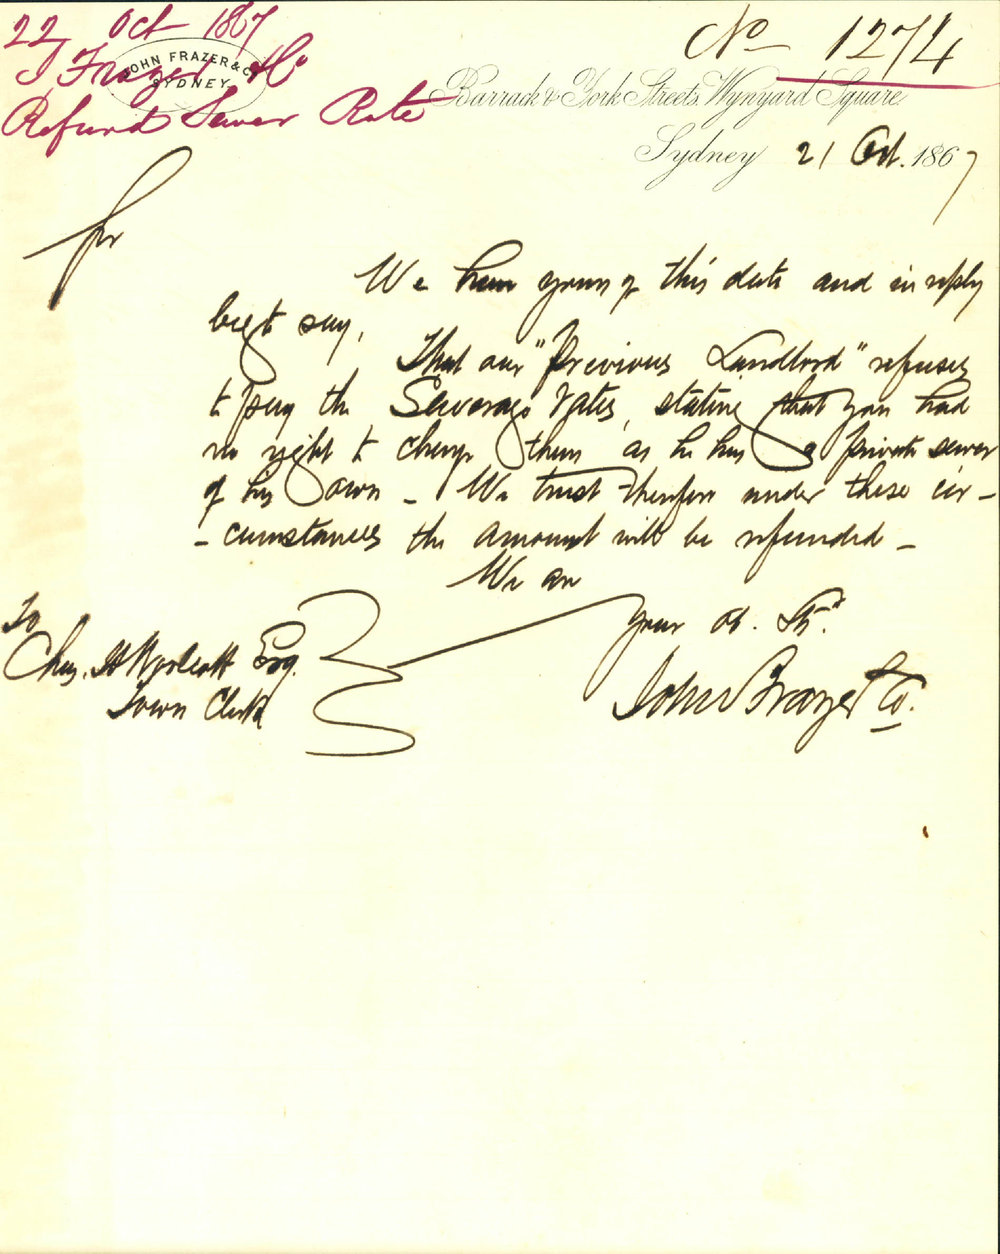 22 Oct 1867
J Frazer & Co
Refund Sewer Rate
JOHN FRAZER & Co
SYDNEY
No 1274
Barrack & York Streets, Wynyard Square,
Sydney 21 Oct. 1867
Sir
We have yours of this date and in reply
beg to say,
That our "Previous Landlord" refuses
to pay the Sewerage rates, stating that you had
no right to charge them as he has a private sewer
of his own - We trust therefore under these cir-
-cumstances the amount will be refunded -
We are
Your Ob. St.
John Frazer & Co.
To
Chas. H Woolcott Esq.
Town Clerk